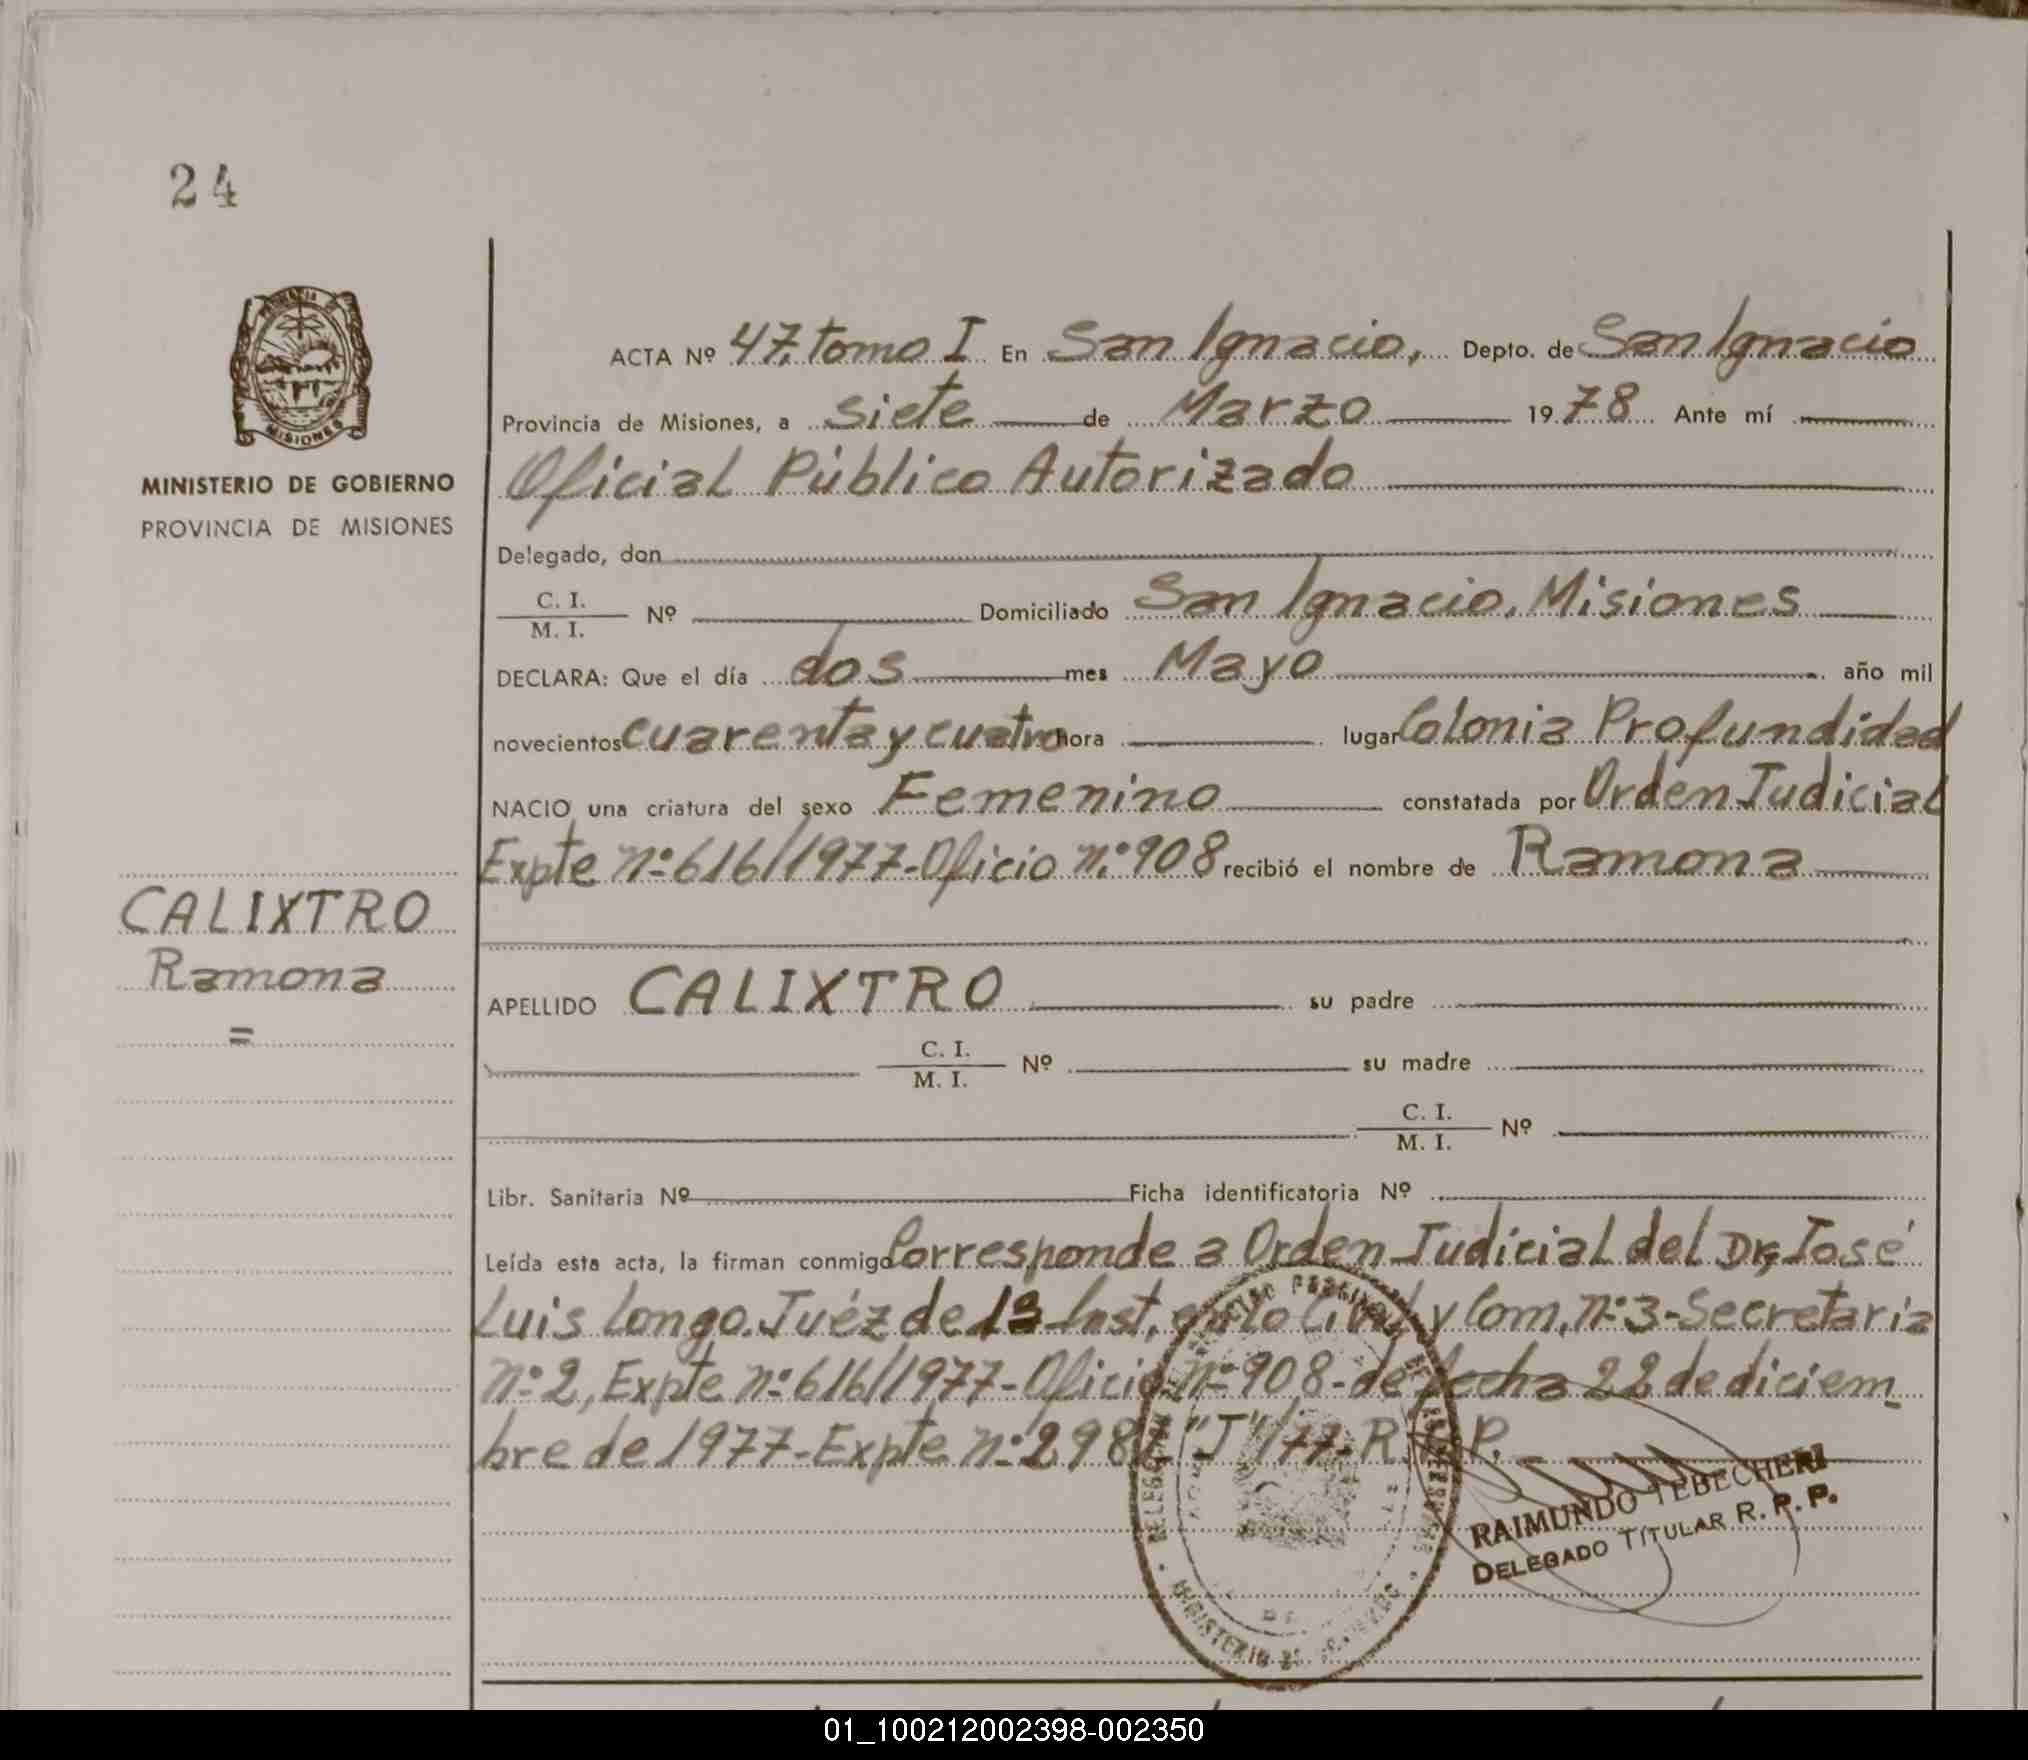 24
ACTA Nº 47, tomo I En San Ignacio, Depto. de San Ignacio
Provincia de Misiones, a siete de Marzo 1978 Ante mí
Oficial Público Autorizado
MINISTERIO DE GOBIERNO
PROVINCIA DE MISIONES
MISIONES
Delegado, don
C. I.
M. I. Nº Domiciliado San Ignacio, Misiones
DECLARA: Que el día dos mes Mayo año mil
novecientos cuarenta y cuatro hora lugar Colonia Profundidad
NACIO una criatura del sexo Femenino constatada por Orden Judicial
Expte nº 616/1977-Oficio nº 908 recibió el nombre de Ramona
CALIXTRO
Ramona
=
APELLIDO CALIXTRO su padre
C. I.
M. I. Nº su madre
C. I.
M. I. Nº
Libr. Sanitaria Nº Ficha identificatoria Nº
Leída esta acta, la firman conmigo Corresponde a Orden Judicial del Dr, José
Luis Longo. Juéz de 1ª Inst, en lo Civil y Com, nº 3-Secretaria
nº 2, Expte nº 616/1977-Oficio nº 908-de fecha 22 de diciem
bre de 1977-Expte nº "J"/77-R. P. P.
RAIMUNDO TEBECHERI
DELEGADO TITULAR R. P. P.
MINISTERIO DE GOBIERNO
01_100212002398-002350